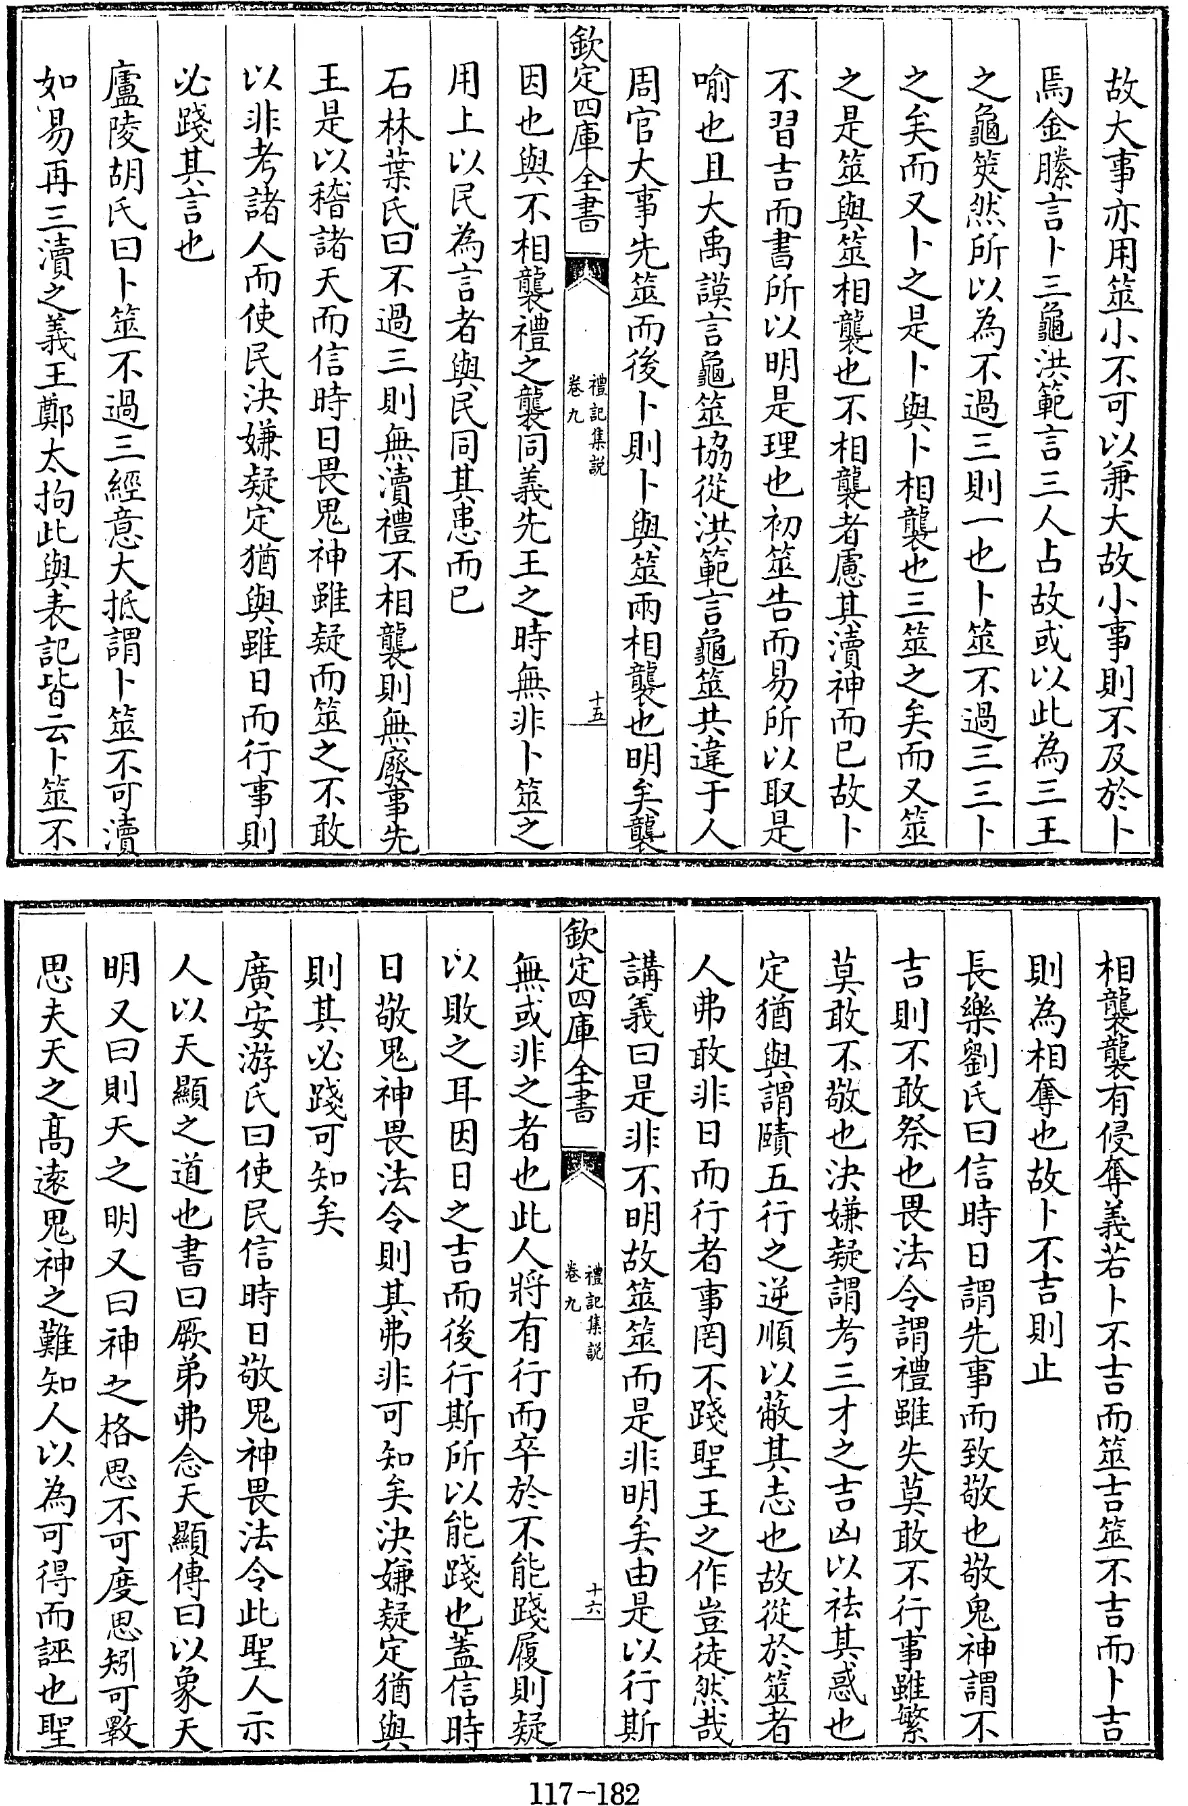 故大事亦用筮小不可以兼大故小事則不及於卜
焉金縢言卜三龜洪範言三人占故或以此為三王
之龜筴然所以為不過三則一也卜筮不過三三卜
之矣而又卜之是卜與卜相襲也三筮之矣而又筮
之是筮與筮相襲也不相襲者慮其瀆神而已故卜
不習吉而書所以明是理也初筮告而易所以取是
喻也且大禹謨言龜筮協從洪範言龜筮共違于人
周官大事先筮而後卜則卜與筮兩相襲也明矣襲
欽定四庫全書
禮記集說
卷九
十五
因也與不相襲禮之襲同義先王之時無非卜筮之
用上以民為言者與民同其患而已
石林葉氏曰不過三則無瀆禮不相襲則無廢事先
王是以稽諸天而信時日畏鬼神雖疑而筮之不敢
以非考諸人而使民決嫌疑定猶與雖日而行事則
必踐其言也
廬陵胡氏曰卜筮不過三經意大抵謂卜筮不可瀆
如易再三瀆之義王鄭太拘此與表記皆云卜筮不
相襲襲有侵奪義若卜不吉而筮吉筮不吉而卜吉
則為相奪也故卜不吉則止
長樂劉氏曰信時日謂先事而致敬也敬鬼神謂不
吉則不敢祭也畏法令謂禮雖失莫敢不行事雖繁
莫敢不敬也決嫌疑謂考三才之吉凶以祛其惑也
定猶與謂賾五行之逆順以蔽其志也故從於筮者
人弗敢非日而行者事罔不踐聖王之作豈徒然哉
講義曰是非不明故筮筮而是非明矣由是以行斯
欽定四庫全書
禮記集說
卷九
十六
無或非之者也此人將有行而卒於不能踐履則疑
以敗之耳因日之吉而後行斯所以能踐也蓋信時
日敬鬼神畏法令則其弗非可知矣決嫌疑定猶與
則其必踐可知矣
廣安游氏曰使民信時日敬鬼神畏法令此聖人示
人以天顯之道也書曰厥弟弗念天顯傳曰以象天
明又曰則天之明又曰神之格思不可度思矧可斁
思夫天之高遠鬼神之難知人以為可得而誣也聖
117-182